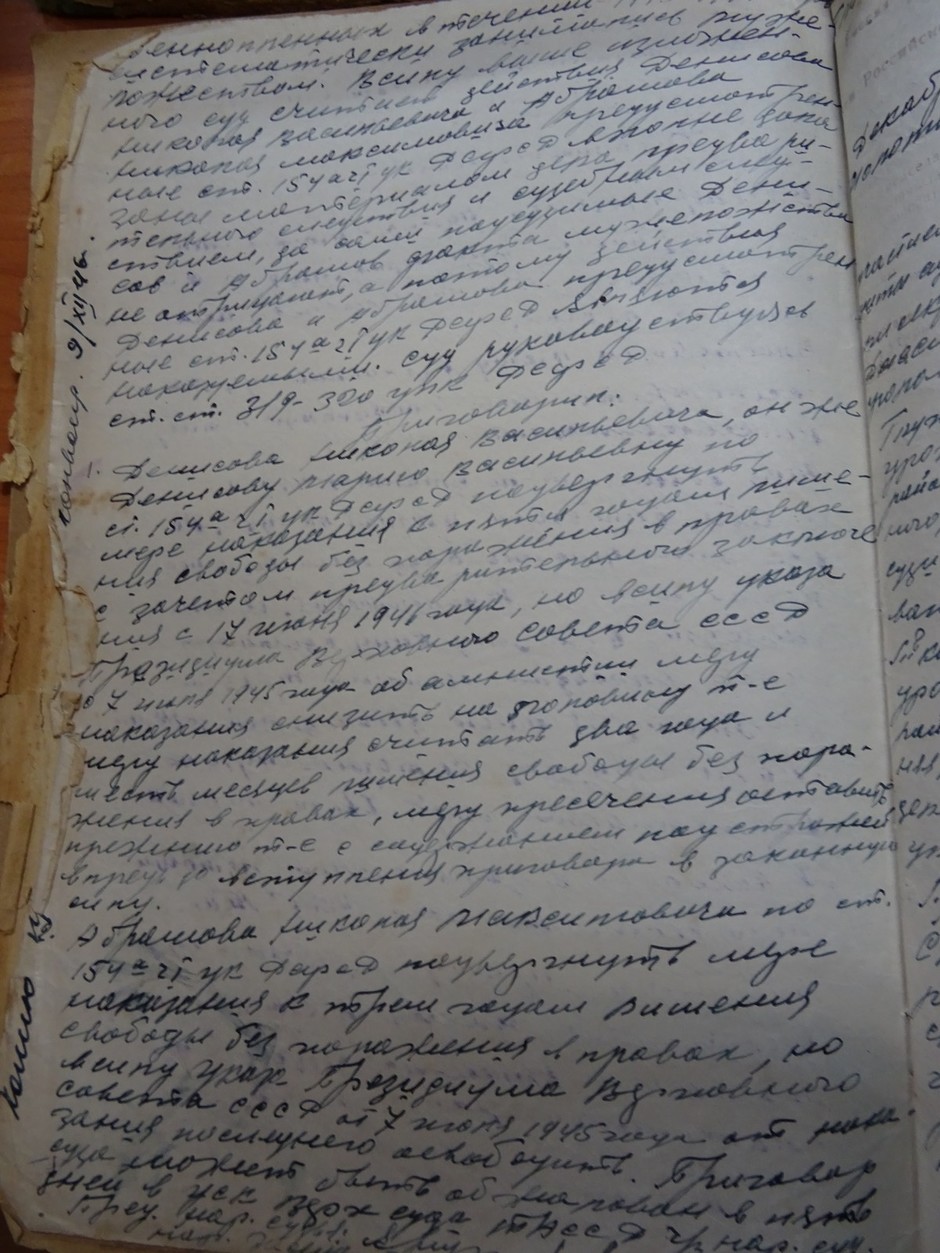 веннопленных в течении
систематически занимались муже-
ложеством. В силу выше изложен-
ного суд считает действия Денисова
Николая Васильевича и Абрашова
Николая Максимовича предусмотрен-
ные ст. 154а ч I УК РСФСР вполне дока
заны материалом дела, предвари-
тельного следствия и судебным след-
ствием, да сами подсудимые Дени-
сов и Абрашов факта мужеложества
не отрицают, а потому действия
Денисова и Абрашова предусмотрен
ные ст. 154а ч I УК РСФСР являются
наказуемыми. Суд руководствуясь
ст. ст. 319-320 УПК РСФСР
Приговорил:
1. Денисова Николая Васильевича, он же
Денисову Марию Васильевну по
ст. 154а ч I УК РСФСР подвергнуть
мере наказания к пяти годам лише-
ния свободы без поражения в правах
с зачетом предварительного заключе
ния с 17 июня 1946 года, но в силу указа
Президиума Верховного Совета СССР
о 7 июля 1945 года об амнистии меру
наказания снизить на половину т-е
меру наказания считать два года и
шесть месяцев лишения свободы без пора-
жения в правах, меру пресечения оставить
прежнюю т-е с содержанием под стражей
впредь до вступления приговора в законную
силу.
Абрашова Николая Максимовича по ст.
154а ч I УК РСФСР подвергнуть мере
наказания к трем годам лишения
свободы без поражения в правах, но
в силу указ Президиума Верховного
Совета СССР от 7 июля 1945 года от нака-
зания последнего освободить. Приговор
суда может быть обжалован в пять
дней в УСК Верх суда ТАССР ч/з нар. суд.
Пред. нар. судья
нар.
Копию
9/XII 46.